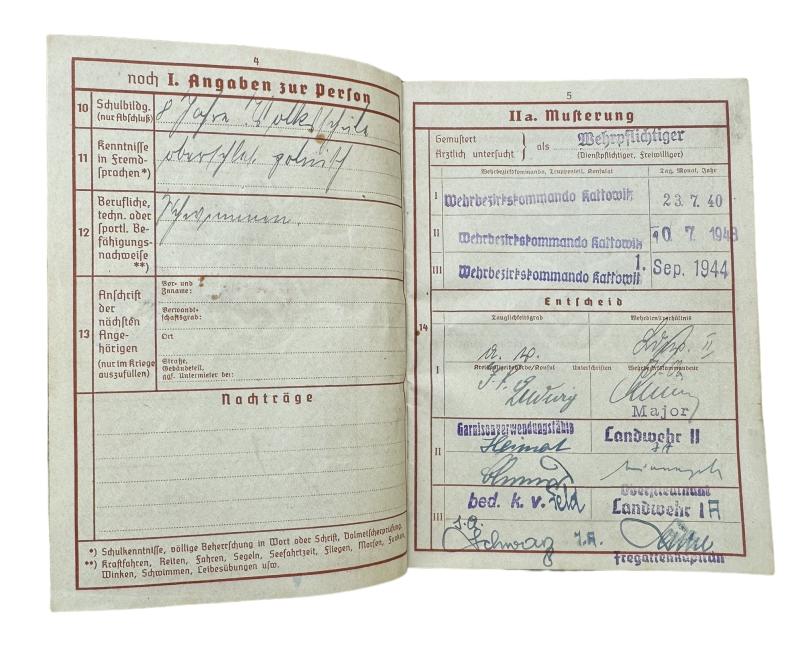 4
noch I. Angaben zur Person
10 Schulbildg. (nur Abschluß) 8 Jahre Volksschule
11 Kenntnisse in Fremdsprachen*) oberschles. polnisch
12 Berufliche, techn. oder sportl. Befähigungsnachweise **) Schwimmen
13 Anschrift der nächsten Angehörigen (nur im Kriege auszufüllen)
Vor- und Zuname:
Verwandtschaftsgrad:
Ort
Straße, Gebäudeteil, ggf. Untermieter bei:
Nachträge
*) Schulkenntnisse, völlige Beherrschung in Wort oder Schrift, Dolmetscherprüfung.
**) Kraftfahren, Reiten, Fahren, Segeln, Seefahrtzeit, Fliegen, Morsen, Funken,
Winken, Schwimmen, Leibesübungen usw.
5
IIa. Musterung
Gemustert
Ärztlich untersucht } als Wehrpflichtiger
(Dienstpflichtiger, Freiwilliger)
Wehrbezirkskommando, Truppenteil, Konsulat Tag, Monat, Jahr
I Wehrbezirkskommando Kattowitz 23. 7. 40
II Wehrbezirkskommando Kattowitz 10. 7. 1943
III Wehrbezirkskommando Kattowitz 1. Sep. 1944
Entscheid
14
Tauglichkeitsgrad Wehrdienstverhältnis
I a. v. II
Unterschriften
Ludwig
Major
II Garnisonverwendungsfähig Landwehr II
Heimat
III bed. k. v. Feld Landwehr I A
Schwarz I.A.
Fregattenkapitän